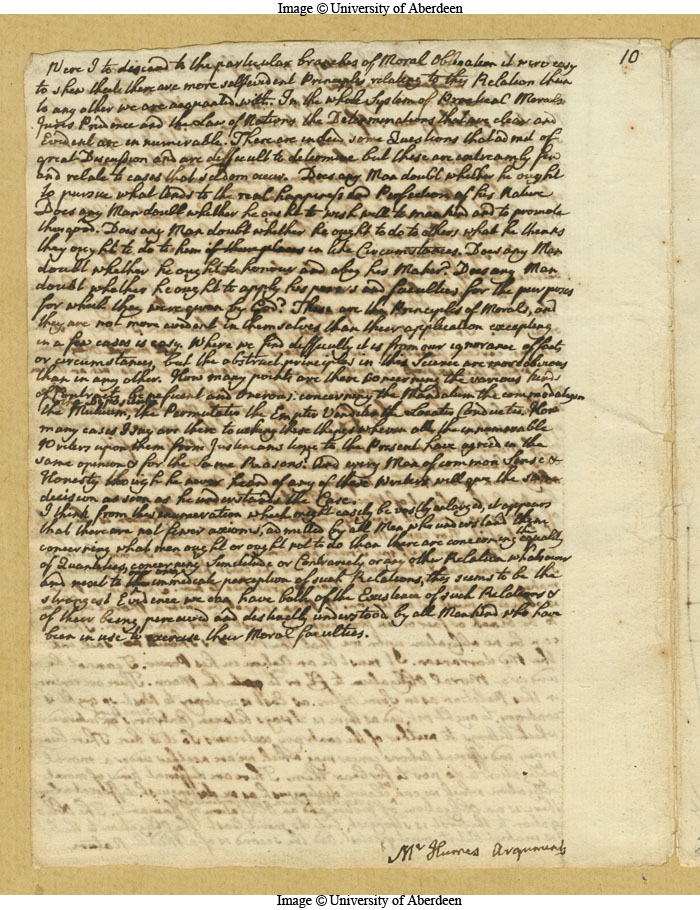 Image © University of Aberdeen
10
Were I to descend to the particular branches of Moral Obligation it were easy
to shew that there are more selfevident Principles relating to this Relation than
to any other we are aquanted with. In the whole System of Practical Morals
Juris Prudence and the Law of Nations the Determinations that are clear and
Evident are innumerable. There are indeed some Questions that admit of
great Discussion and are difficult to determine but these are extreamly few
and relate to cases that seldom occur. Does any Man doubt whether he ought
to pursue what tends to the real happiness and Perfection of his Nature
Does any Man doubt whether he ought to wish well to mankind and to promote
their good. Does any Man doubt whether he ought to do to others what he thinks
they ought to do to him in like Circumstances. Does any Man
doubt whether he ought to honour and obey his Maker? Does any Man
doubt whether he ought to apply his powers and faculties for the purposes
for which they were given by God? These are the Principles of Morals, and
they are not more evident in themselves than their application excepting
in a few cases is easy. Where we find difficulty it is from our ignorance of facts
or circumstances, but the abstract principles in this Science are more obvious
than in any other. How many points are there concerning the various kinds
of Contracts beneficent and onerous: concerning the Mandatum the commodatum
the Mutuum, the Permutatio the Emptio Venditio the Locatio Conductio. How
many cases I say are there touching these things wherein all the innumerable
Writers upon them from Justinians time to the Present have agreed in the
same opinion & for the same Reasons. And every Man of common Sense &
Honesty though he never heard of any of these Writers will give the same
decision as soon as he understands the Case.
I think from this enumeration which might easily be vastly enlarged, it appears
that there are not fewer axioms, admitted by all Men who understand them
concerning what men ought or ought not to do than there are concerning the equality
of Quantities, concerning Similitude or Contrariety or any other Relation whatsoever
and next to the immediate perception of such Relations, this seems to be the
strongest Evidence we can have both of the Existence of such Relations &
of their being perceived and distinctly understood by all Mankind who have
been in use to exercise their Moral faculties.
Mr Humes Arguments
Image © University of Aberdeen